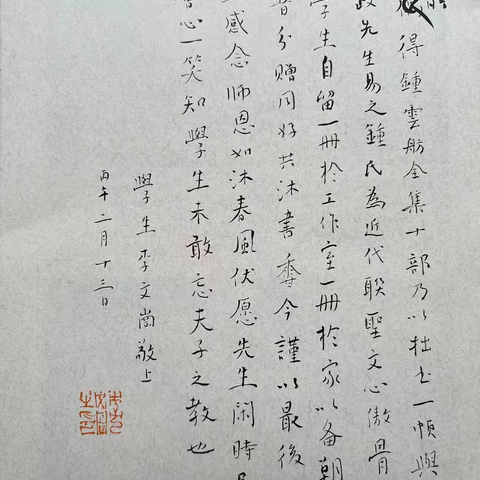 得鍾雲舫全集十部乃以拙書一幀與
政先生易之鍾氏為近代聯聖文心傲骨
學生自留一冊於工作室一冊於家以備朝
皆分贈同好共沐書香今謹以最後
感念師恩如沐春風伏愿先生閑時
會心一笑知學生未敢忘夫子之教也
學生李文尚敬上
丙午二月十三日